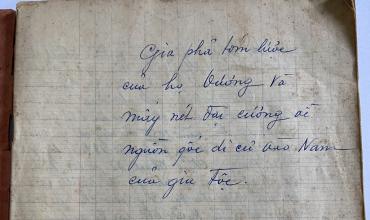 Gia phả tóm lược
của họ Dương và
mấy nét đại cương về
nguồn gốc di cư vào Nam
của gia Tộc.